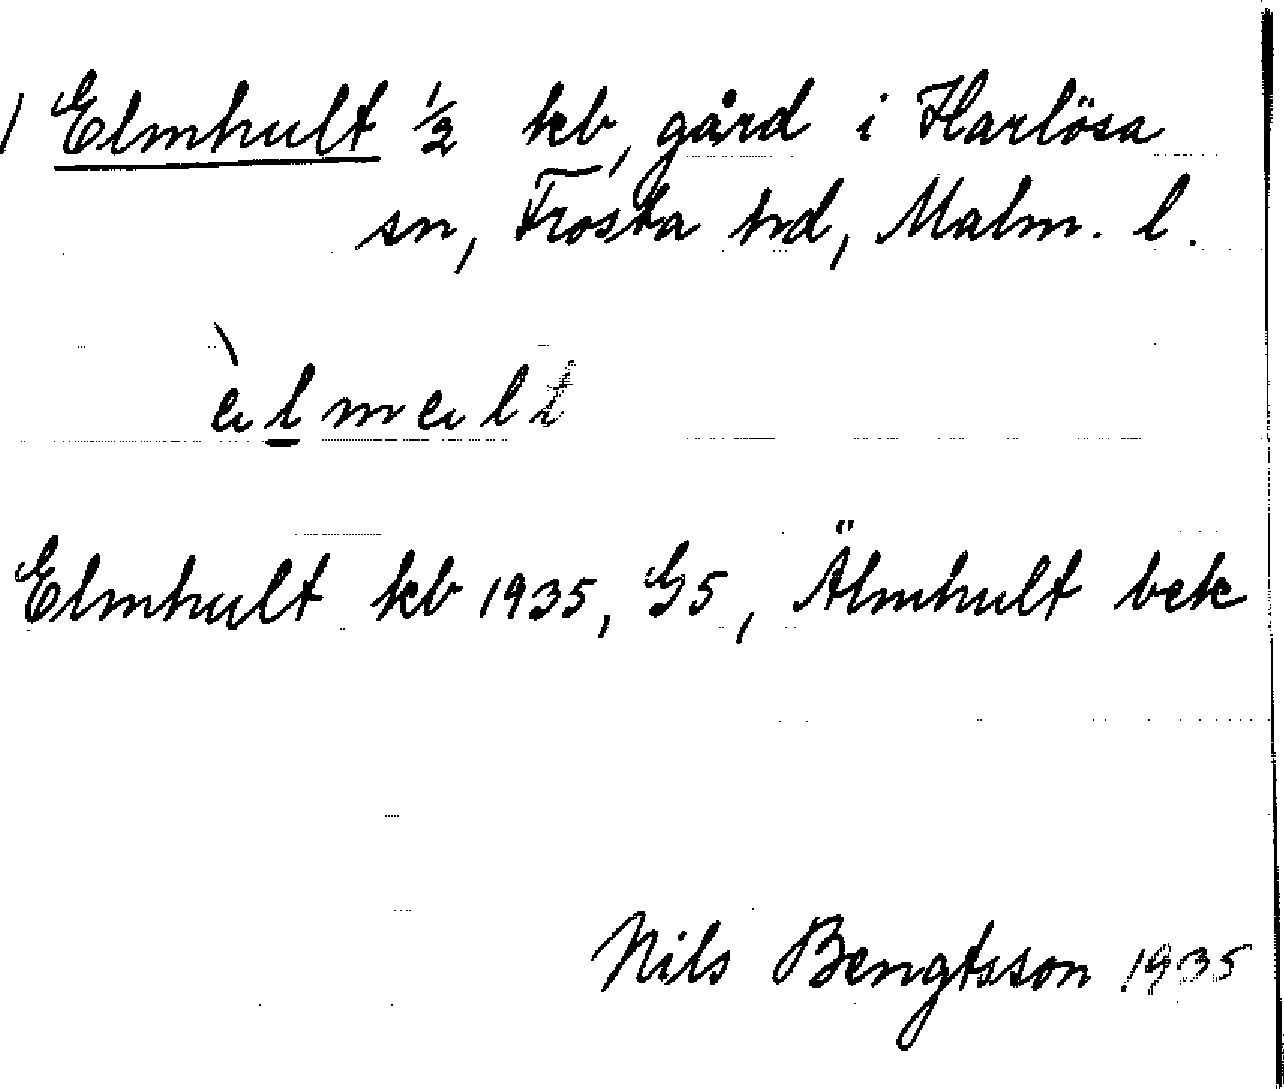 Elmhult ½ kb, gård i Harlösa
sn, Frosta hd, Malm. l.
Elmhult kb 1935, G5, Älmhult bek
Nils Bengtsson 1935